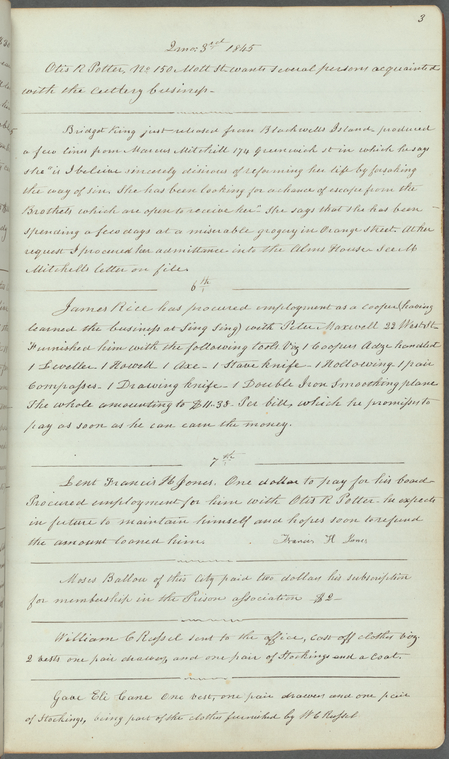 3
2mo: 3rd 1845
Otis R Potter, No 150 Mott St. wants several persons acquainted
with the cutlery business-
Bridget King just released from Blackwells Island produced
a few lines from Marcus Mitchill 174 Greenwich st in which he says
she "is I believe sincerely desirous of reforming her life by forsaking
the way of sin. She has been looking for a chance of escape from the
Brothels which are open to receive her". She says that she has been
spending a few days at a miserable grogery in Orange street. At her
request I procured her admittance into the Alms House. See M
Mitchells letter on file.
6th
James Rice has procured employment as a cooper, (having
learned the business at Sing Sing) with Peter Maxwell 23 West St-
Furnished him with the following tools Viz 1 Coopers Adze handled
1 Leveller 1 Howell 1 Axe- 1 Stave knife- 1 Hollowing- 1 pair
Compasses- 1 Drawing knife- 1 Double Iron Smoothing plane
The whole amounting to $11-38- Per bill, which he promises to
pay as soon as he can earn the money.
7th
Lent Francis H Jones. One dollar to pay for his board
Procured employment for him with Otis R Potter he expects
in future to maintain himself and hopes soon to refund
the amount loaned him. Francis H Jones
Moses Ballou of this City paid two dollars his subscription
for membership in the Prison association $2-
William C Russel sent to the office, cast off clothes viz.
2 vests one pair drawers, and one pair of Stockings and a coat.
Gave Eli Cane One vest, one pair drawers and one pair
of Stockings, being part of the clothes furnished by W C Russel